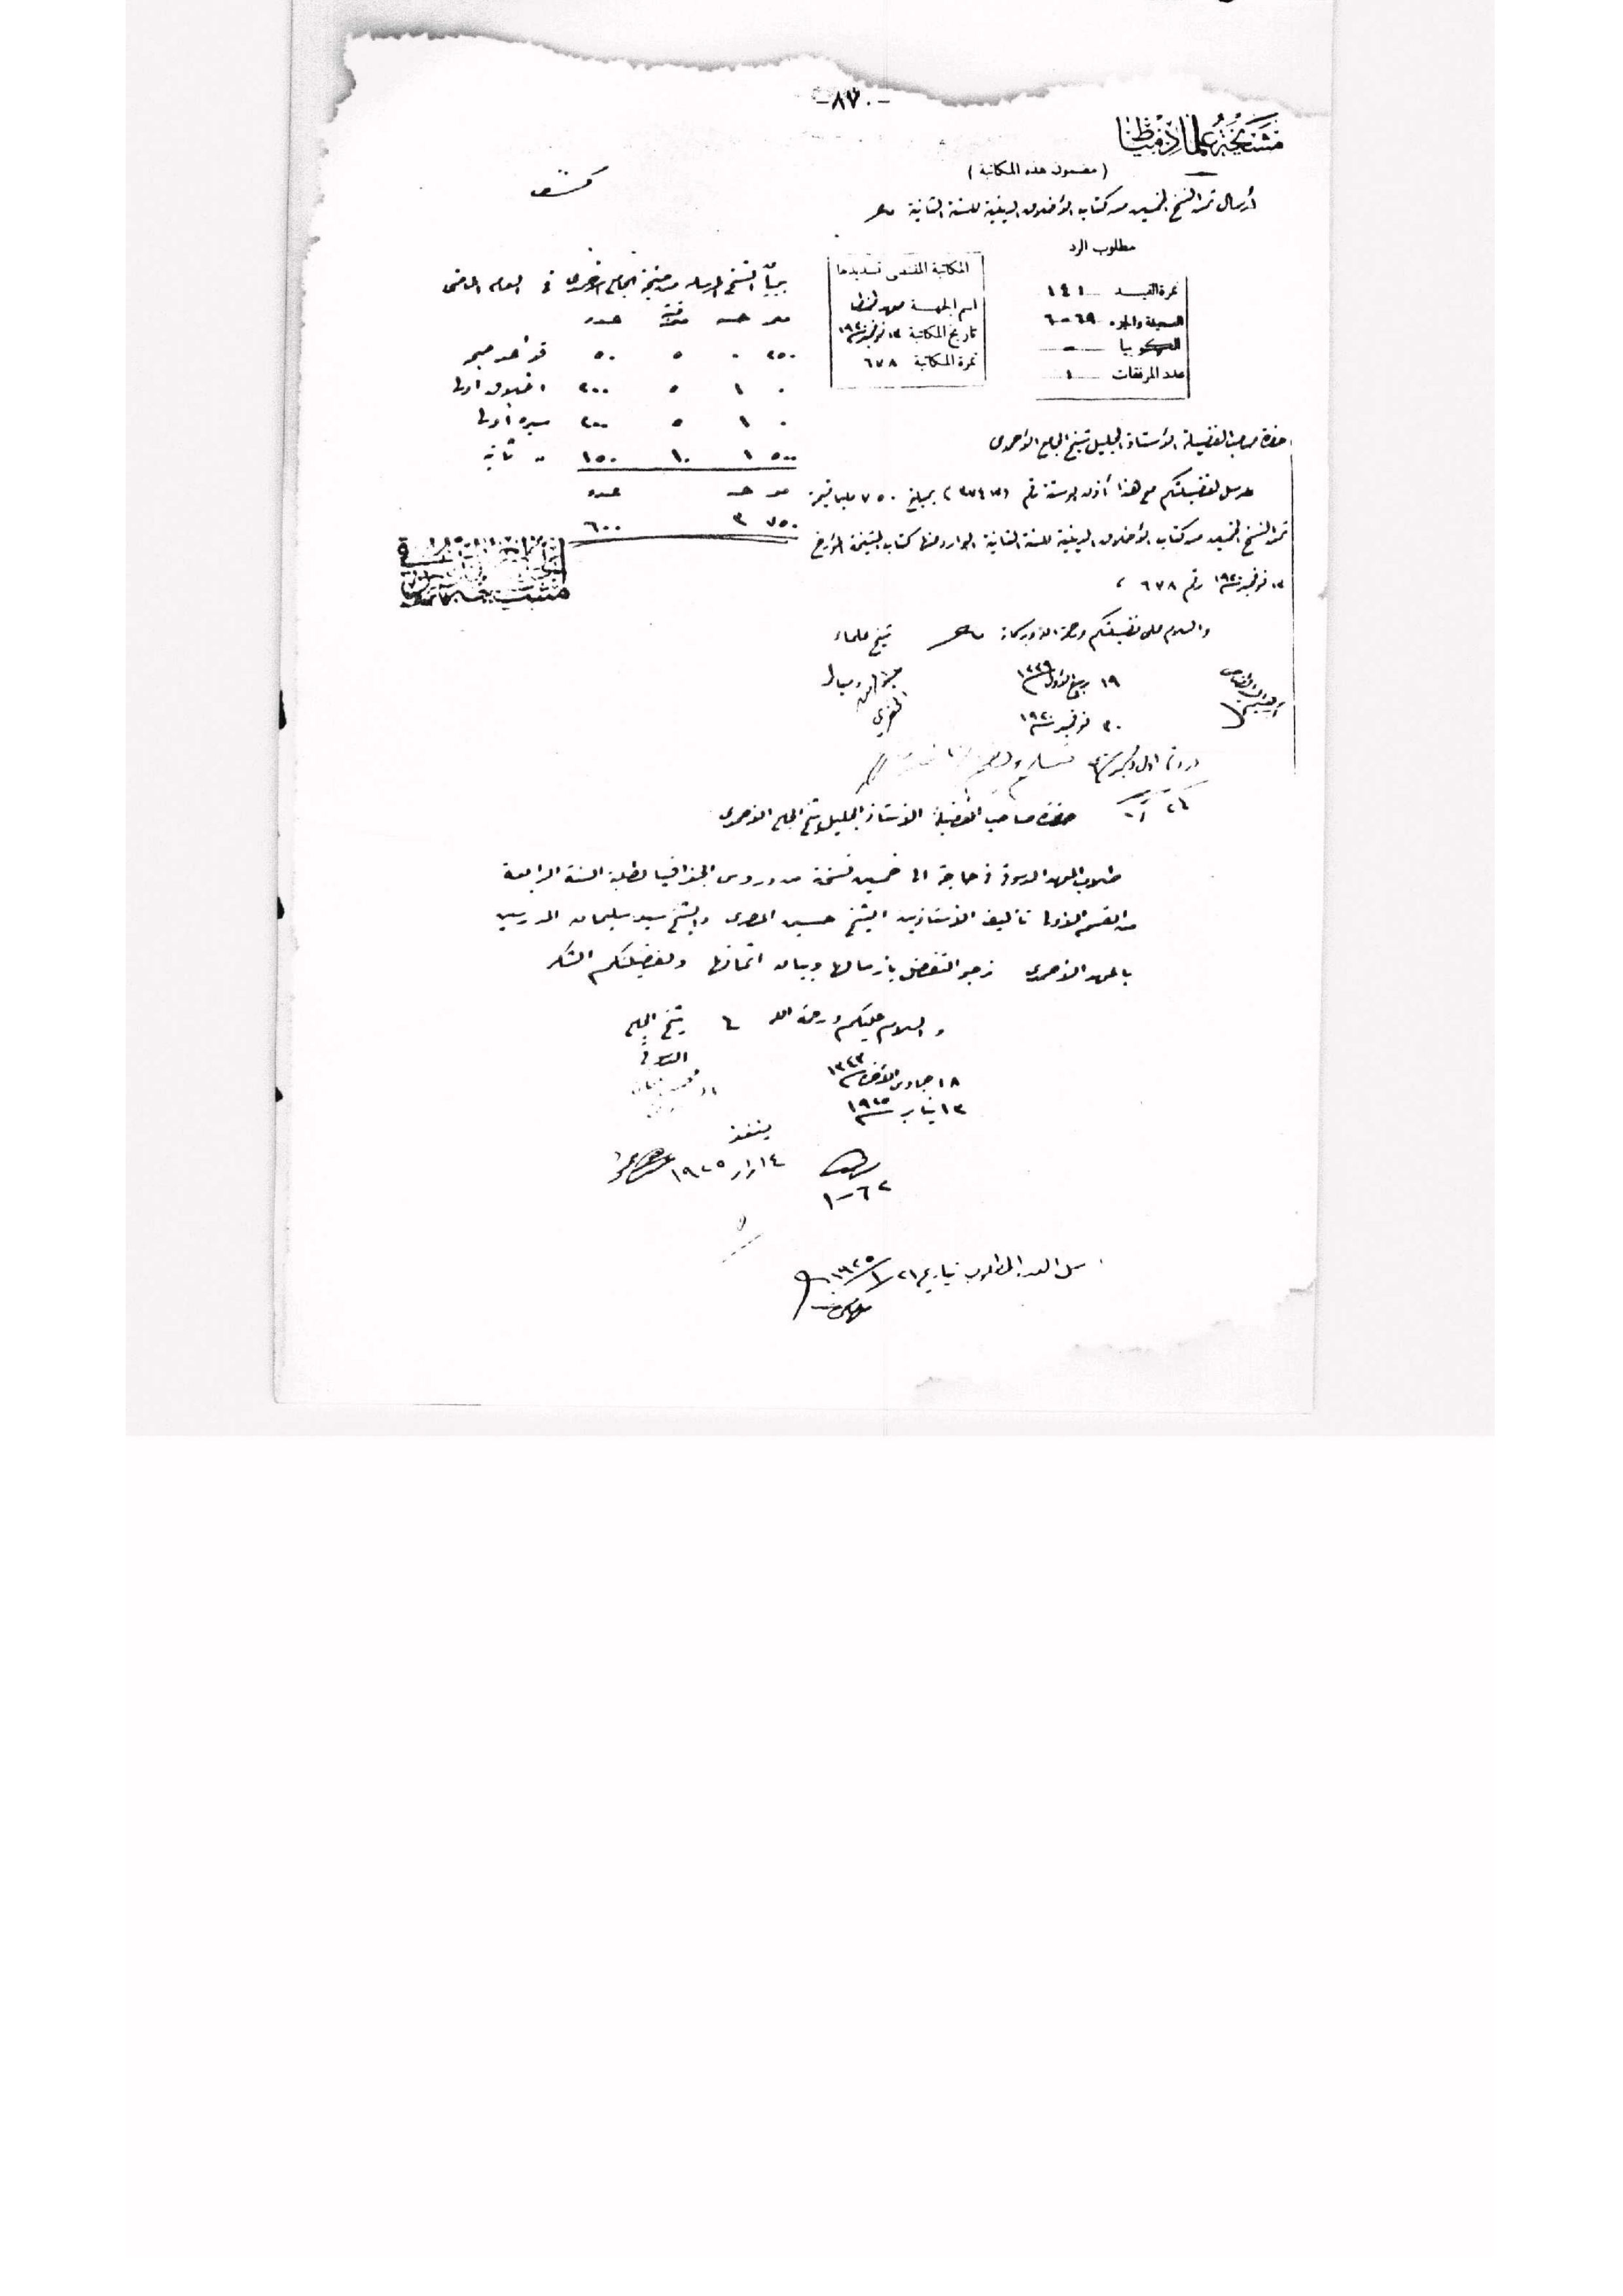 -٨٧٠-
مشيخة علماء دمياط
(مضمون هذه المكاتبة)
أرسال ثمن النسخ الخمسين من كتاب الأخلاق الدينية للسنة الثانية
كشف
مطلوب الرد
نمرة القيد ١٤١
السجلة والجزء ٦٩-٦
الكوبيا -
عدد المرفقات ١
المكاتبة المقتضى تسديدها
اسم الجهة معهد طنطا
تاريخ المكاتبة ١٣ نوفمبر سنة ١٩٢٠
نمرة المكاتبة ٦٧٨
بيان النسخ المرسلة من مشيخة الجامع الأحمدى فى العام الماضى
عدد
٢٥٠ ٠ ٥ ٥٠
٠ ١ ٥ ٢٠٠ اخلاق أولى
٠ ١ ٥ ٢٠٠ سيرة أولى
٥٠٠ ١ ١٠ ١٥٠ ثانية
عدد
٧٥٠ ٣ ٦٠٠
حضرة صاحب الفضيلة الأستاذ الجليل شيخ الجامع الأحمدى
نرسل لفضيلتكم مع هذا أذن بوستة رقم بمبلغ ٧٥٠ مليما قيمة
ثمن النسخ الخمسين من كتاب الأخلاق الدينية للسنة الثانية الوارد عنها كتاب المشيخة المؤرخ
١٣ نوفمبر سنة ١٩٢٠ رقم ٦٧٨
والسلام على فضيلتكم ورحمة الله وبركاته شيخ علماء
١٩ ربيع الأول سنة ١٣٣٩ دمياط
٣٠ نوفمبر سنة ١٩٢٠
حضرة صاحب الفضيلة الأستاذ الجليل شيخ الجامع الأحمدى
طلاب المعهد الدسوقى فى حاجة الى خمسين نسخة من دروس الجغرافيا لطلبة السنة الرابعة
من القسم الأولى تأليف الأستاذين الشيخ حسين المصرى والشيخ سيد سليمان المدرسين
بالمعهد الأحمدى نرجو التفضل بإرسالها وبيان اثمانها ولفضيلتكم الشكر
والسلام عليكم ورحمة الله شيخ الجامع
١٨ جمادى الآخرة سنة ١٣٤٣ الدسوقى
١٣ يناير سنة ١٩٢٥
ينفذ
العدد المطلوب بتاريخ ٢١/١/١٩٢٥